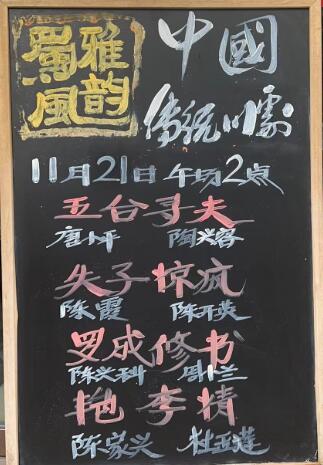 蜀風雅韵
中國
传统川劇
11月21日 午场2点
五台寻夫
唐 平 陶兴
失子惊疯
陈霞 陈开英
罗成修书
陈兴科
李情
陈家兴 杜 莲